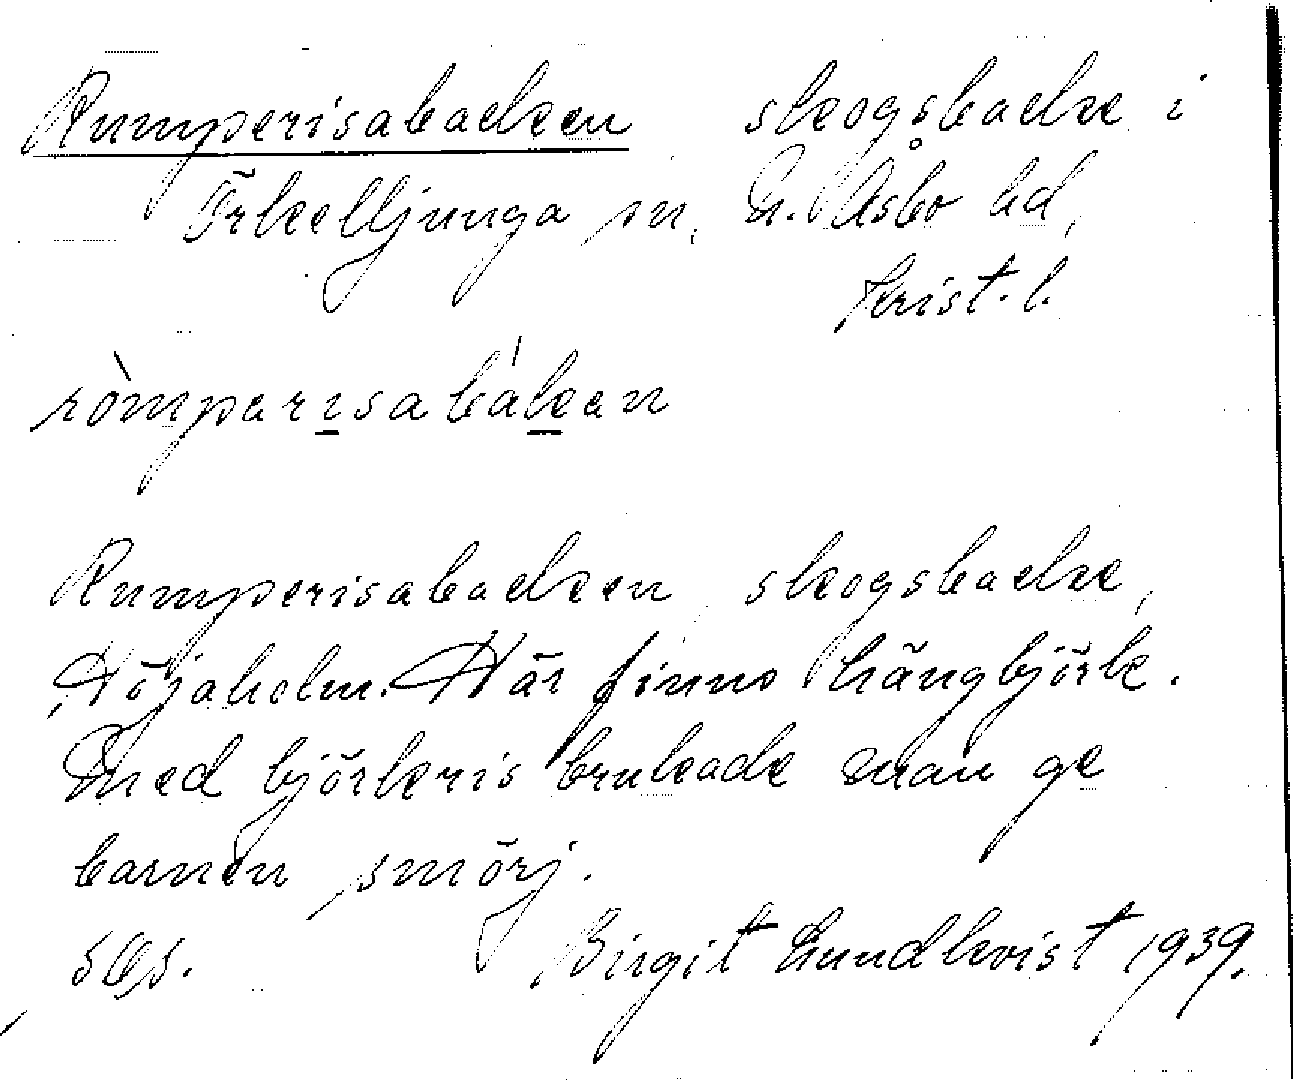 Rumperisabacken skogsbacke i
Örkelljunga sn, N. Åsbo hd,
Krist. l.
ròmparisabákan
Rumperisabacken, skogsbacke,
Höjaholm. Här finns hängbjörk.
Med björkris brukade man ge
barnen smörj.
Birgit Lundkvist 1939.